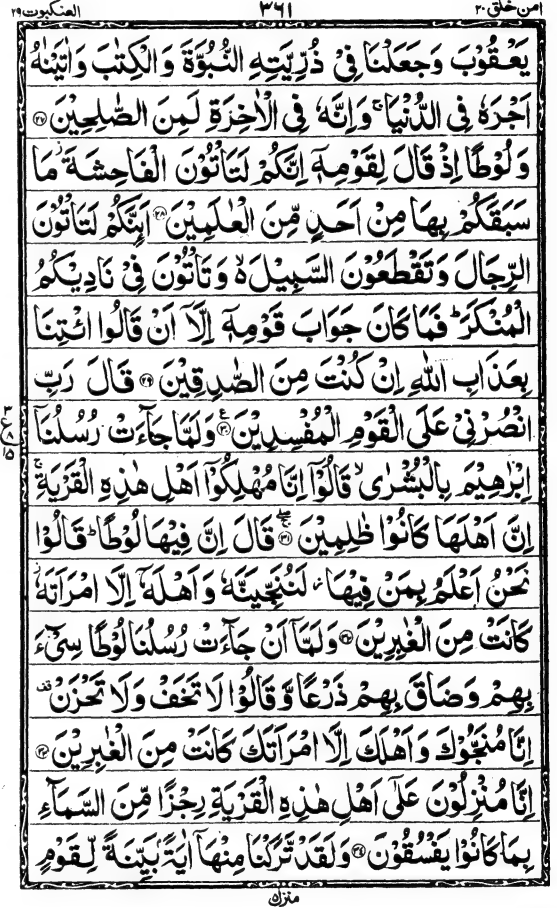 امن خلق ٢٠ ٣٦١ العنكبوت ٢٩
يَعْقُوْبَ وَجَعَلْنَا فِيْ ذُرِّيَّتِهِ النُّبُوَّةَ وَالْكِتٰبَ وَاٰتَيْنٰهُ
اَجْرَهٗ فِي الدُّنْيَا ۚ وَاِنَّهٗ فِي الْاٰخِرَةِ لَمِنَ الصّٰلِحِيْنَ ﴿٢٧﴾
وَلُوْطًا اِذْ قَالَ لِقَوْمِهٖٓ اِنَّكُمْ لَتَاْتُوْنَ الْفَاحِشَةَ ؗ مَا
سَبَقَكُمْ بِهَا مِنْ اَحَدٍ مِّنَ الْعٰلَمِيْنَ ﴿٢٨﴾ اَئِنَّكُمْ لَتَاْتُوْنَ
الرِّجَالَ وَتَقْطَعُوْنَ السَّبِيْلَ ۙ۬ وَتَاْتُوْنَ فِيْ نَادِيْكُمُ
الْمُنْكَرَ ؕ فَمَا كَانَ جَوَابَ قَوْمِهٖٓ اِلَّآ اَنْ قَالُوا ائْتِنَا
بِعَذَابِ اللّٰهِ اِنْ كُنْتَ مِنَ الصّٰدِقِيْنَ ﴿٢٩﴾ قَالَ رَبِّ
انْصُرْنِيْ عَلَى الْقَوْمِ الْمُفْسِدِيْنَ ﴿٣٠﴾ ع وَلَمَّا جَآءَتْ رُسُلُنَآ
٣ ع ٨ ١٥
اِبْرٰهِيْمَ بِالْبُشْرٰى ۙ قَالُوْٓا اِنَّا مُهْلِكُوْٓا اَهْلِ هٰذِهِ الْقَرْيَةِ ۚ
اِنَّ اَهْلَهَا كَانُوْا ظٰلِمِيْنَ ﴿٣١﴾ ۚۖ قَالَ اِنَّ فِيْهَا لُوْطًا ؕ قَالُوْا
نَحْنُ اَعْلَمُ بِمَنْ فِيْهَا ؗ لَنُنَجِّيَنَّهٗ وَاَهْلَهٗٓ اِلَّا امْرَاَتَهٗ ؗ
كَانَتْ مِنَ الْغٰبِرِيْنَ ﴿٣٢﴾ وَلَمَّآ اَنْ جَآءَتْ رُسُلُنَا لُوْطًا سِيْٓءَ
بِهِمْ وَضَاقَ بِهِمْ ذَرْعًا وَّقَالُوْا لَا تَخَفْ وَلَا تَحْزَنْ قف
اِنَّا مُنَجُّوْكَ وَاَهْلَكَ اِلَّا امْرَاَتَكَ كَانَتْ مِنَ الْغٰبِرِيْنَ ﴿٣٣﴾
اِنَّا مُنْزِلُوْنَ عَلٰٓى اَهْلِ هٰذِهِ الْقَرْيَةِ رِجْزًا مِّنَ السَّمَآءِ
بِمَا كَانُوْا يَفْسُقُوْنَ ﴿٣٤﴾ وَلَقَدْ تَّرَكْنَا مِنْهَآ اٰيَةًۢ بَيِّنَةً لِّقَوْمٍ
منزل ٥